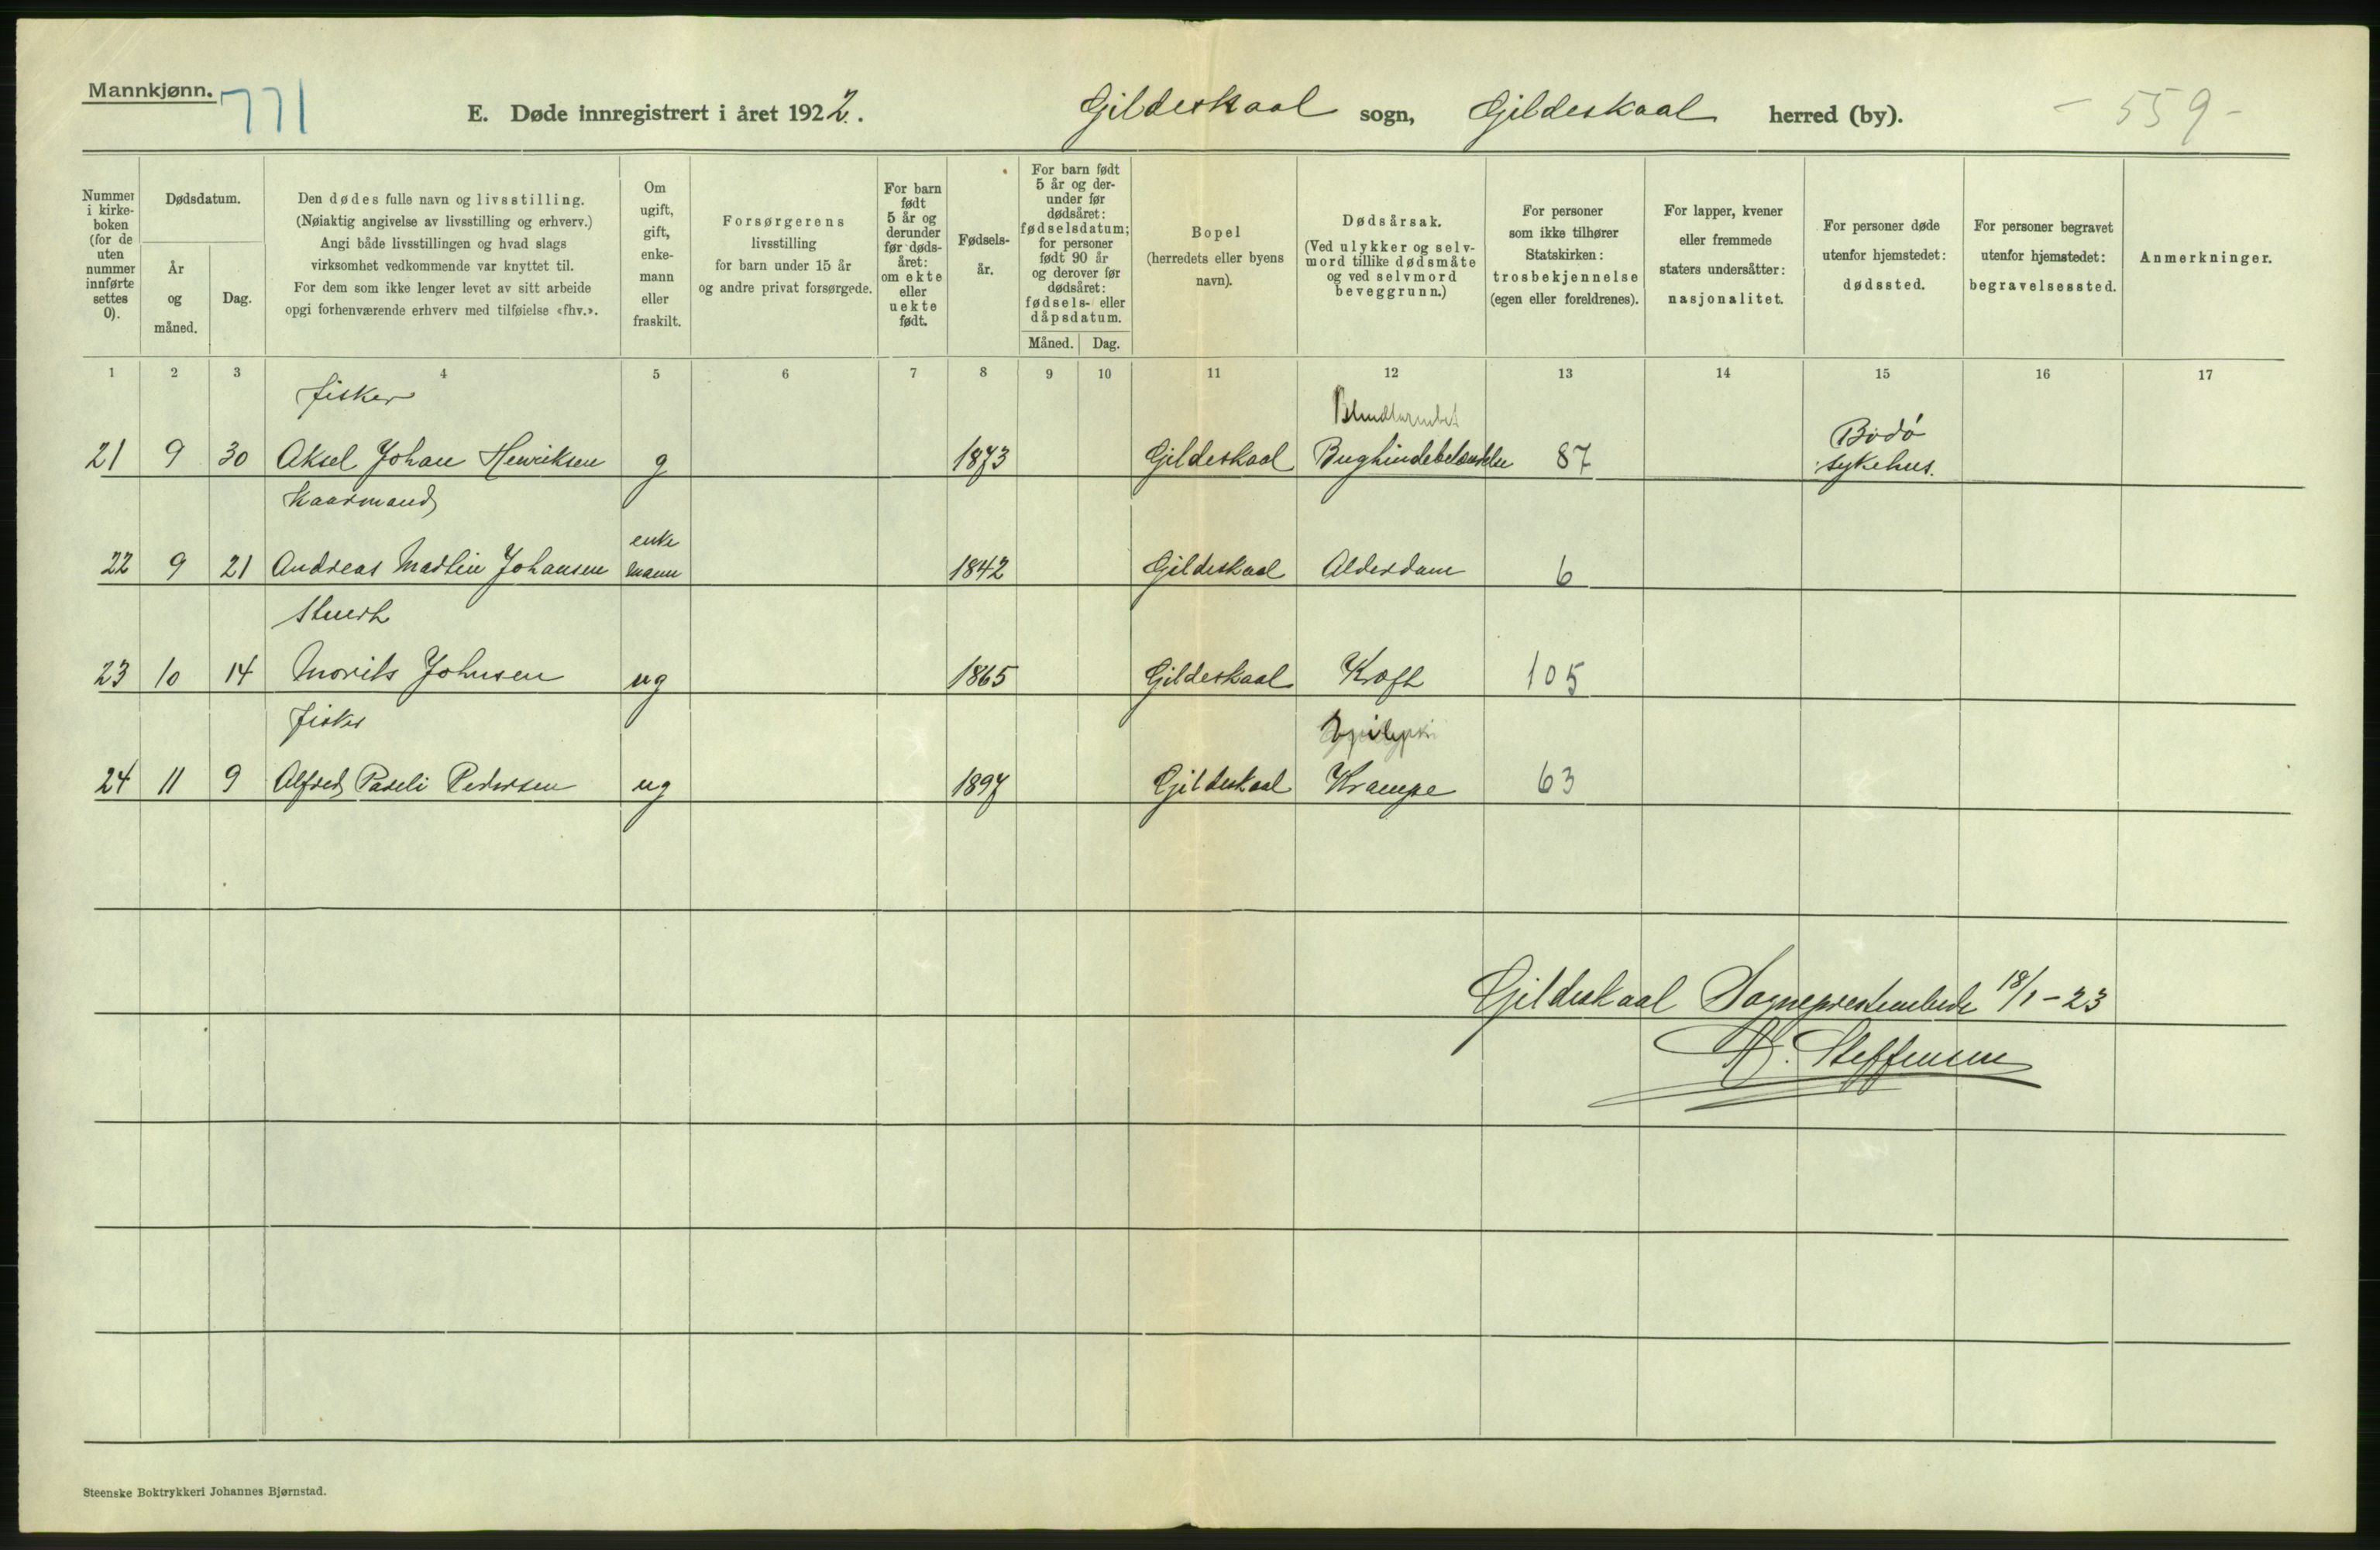 Mannkjønn.
771
E. Døde innregistrert i året 1922.
Gildeskaal sogn, Gildeskaal herred (by).
- 559 -
Nummer i kirke-boken (for de uten nummer innførte settes 0).
Dødsdatum.
År og måned.
Dag.
Den dødes fulle navn og livsstilling.
(Nøiaktig angivelse av livsstilling og erhverv.)
Angi både livsstillingen og hvad slags
virksomhet vedkommende var knyttet til.
For dem som ikke lenger levet av sitt arbeide
opgi forhenværende erhverv med tilføielse «fhv.».
Om ugift, gift, enke-mann eller fraskilt.
Forsørgerens
livsstilling
for barn under 15 år
og andre privat forsørgede.
For barn født 5 år og derunder før døds-året: om ekte eller uekte født.
Fødsels-år.
For barn født 5 år og der-under før dødsåret: fødselsdatum; for personer født 90 år og derover før dødsåret: fødsels- eller dåpsdatum.
Måned.
Dag.
Bopel
(herredets eller byens
navn).
Dødsårsak.
(Ved ulykker og selv-
mord tillike dødsmåte
og ved selvmord
beveggrunn.)
For personer
som ikke tilhører
Statskirken:
trosbekjennelse
(egen eller foreldrenes).
For lapper, kvener
eller fremmede
staters undersåtter:
nasjonalitet.
For personer døde
utenfor hjemstedet:
dødssted.
For personer begravet
utenfor hjemstedet:
begravelsessted.
Anmerkninger.
1 2 3 4 5 6 7 8 9 10 11 12 13 14 15 16 17
fisker
Bodó
21 9 30 Aksel Johan Henriksen g 1873 Gildeskaal 87 sykehus.
Kaarmand
enke
22 9 21 Andreas Martin Johansen mann 1842 Gildeskaal Alderdom 6
23 10 14 Morits Johnsen ug 1865 Gildeskaal Kræft 105
fisker
24 11 9 Alfred Paseli Pedersen ug 1897 Gildeskaal Krampe 63
Gildeskaal Sogneprestembede 18/1-23
Steffensen
Steenske Boktrykkeri Johannes Bjørnstad.